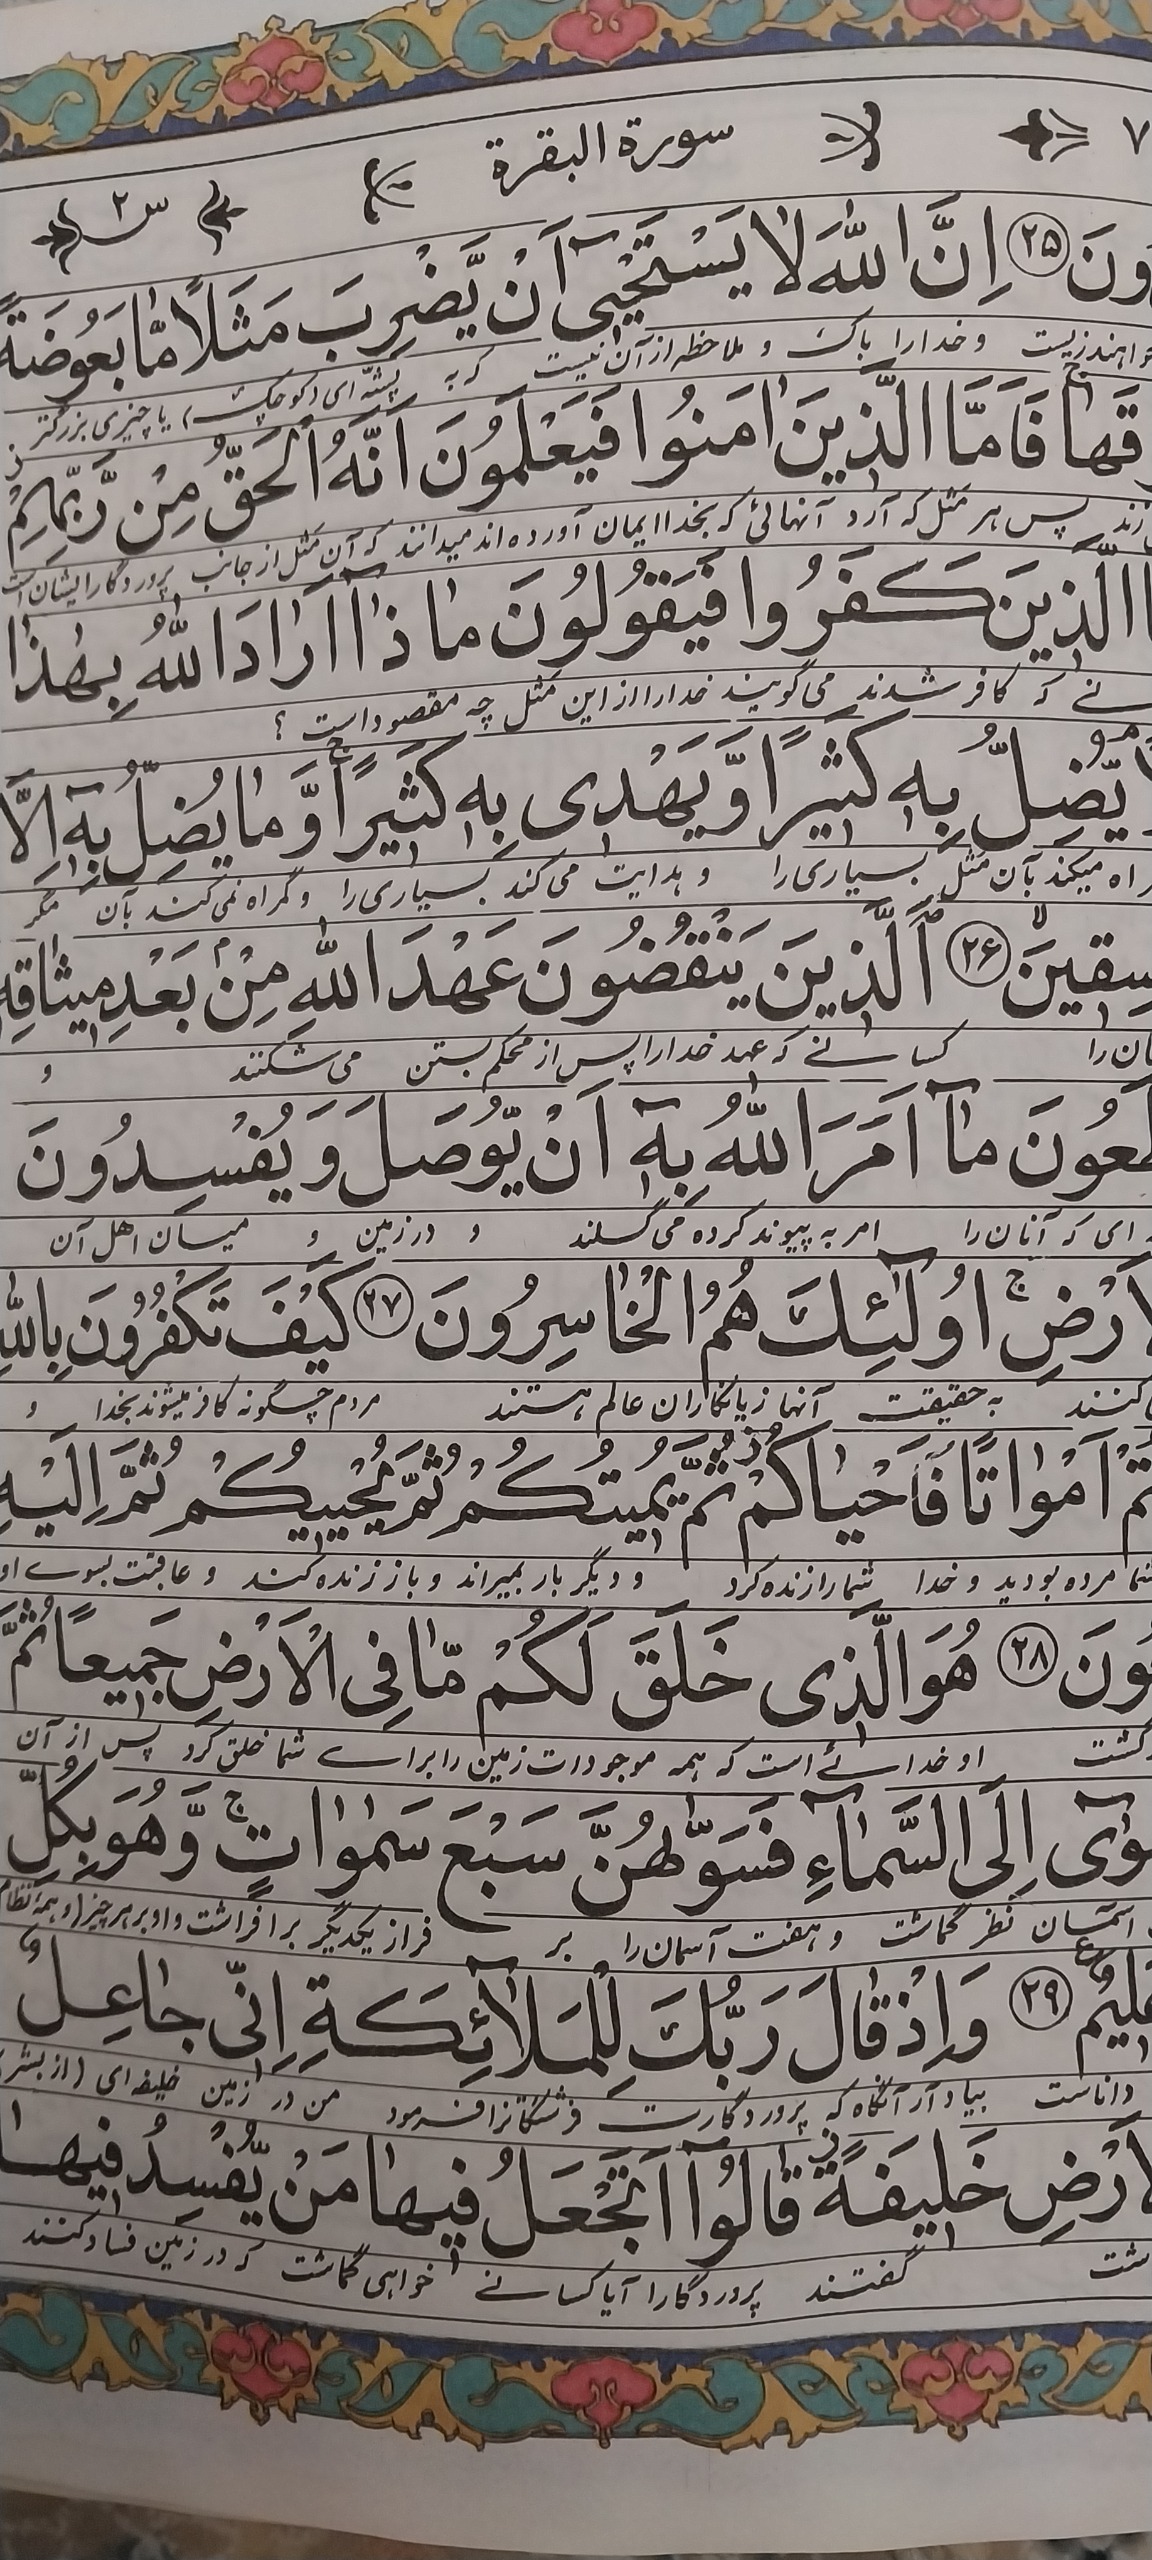 ٧ سورة البقرة س ٢
ونَ ٢٥ اِنَّ اللّٰهَ لا يَسْتَحْيٖى اَنْ يَّضْرِبَ مَثَلًا مّٰا بَعُوضَةً
زیست و خدا را باک و ملاحظه از آن نیست که به پشه‌ای (کوچک) یا چیزی بزرگتر
قَهٰا فَاَمَّا الَّذينَ اٰمَنُوا فَيَعْلَمُونَ اَنَّهُ الْحَقُّ مِنْ رَّبِّهِمْ
پس هر مثل که آرد آنهائی که بخدا ایمان آورده‌اند میدانند که آن مثل از جانب پروردگار ایشان است
ا الَّذينَ كَفَرُوا فَيَقُولُونَ مٰا ذٰا اَرٰادَ اللّٰهُ بِهٰذٰا
نے که کافر شدند می‌گویند خدا را از این مثل چه مقصود است ؟
يُضِلُّ بِهٖ كَثيرًا وَّيَهْدى بِهٖ كَثيرًا وَّمٰا يُضِلُّ بِهٖٓ اِلَّا
راه میکند بآن مثل بسیاری را و هدایت می‌کند بسیاری را و گمراه نمی‌کند بآن مگر
سِقينَ ٢٦ اَلَّذينَ يَنْقُضُونَ عَهْدَ اللّٰهِ مِنْ بَعْدِ ميثٰاقِهٖ
ان را کسانے که عهد خدا را پس از محکم بستن می‌شکنند و
طَعُونَ مٰآ اَمَرَ اللّٰهُ بِهٖٓ اَنْ يُّوصَلَ وَ يُفْسِدُونَ
ای که آنان را امر به پیوند کرده می‌گسلند و در زمین و میان اهل آن
اَرْضِ اُولٰٓئِكَ هُمُ الْخٰاسِرُونَ ٢٧ كَيْفَ تَكْفُرُونَ بِاللّٰهِ
کنند به حقیقت آنها زیانکاران عالم هستند مردم چگونه کافر میشوند بخدا و
تُمْ اَمْوٰاتًا فَاَحْيٰاكُمْ ثُمَّ يُميتُكُمْ ثُمَّ يُحْييكُمْ ثُمَّ اِلَيْهِ
شما مرده بودید و خدا شما را زنده کرد و دیگر بار بمیراند و باز زنده کند و عاقبت بسوے او
عُونَ ٢٨ هُوَ الَّذى خَلَقَ لَكُمْ مّٰا فِى الْاَرْضِ جَميعًا ثُمَّ
گشت او خدائے است که همه موجودات زمین را براے شما خلق کرد پس از آن
وٰٓى اِلَى السَّمٰآءِ فَسَوّٰهُنَّ سَبْعَ سَمٰوٰاتٍ وَّهُوَ بِكُلِّ
آسمان نظر گماشت و هفت آسمان را بر فراز یکدیگر برافراشت و او بر هر چیز (و همه نظام
عَليمٌ ٢٩ وَاِذْ قٰالَ رَبُّكَ لِلْمَلٰآئِكَةِ اِنّى جٰاعِلٌ
داناست بیاد آر آنگاه که پروردگارت فرشتگانرا فرمود من در زمین خلیفه‌ای (از بشر)
اَرْضِ خَليفَةً قٰالُوٓا اَتَجْعَلُ فيهٰا مَنْ يُّفْسِدُ فيهٰا
گفتند پروردگارا آیا کسانے خواهی گماشت که در زمین فساد کنند